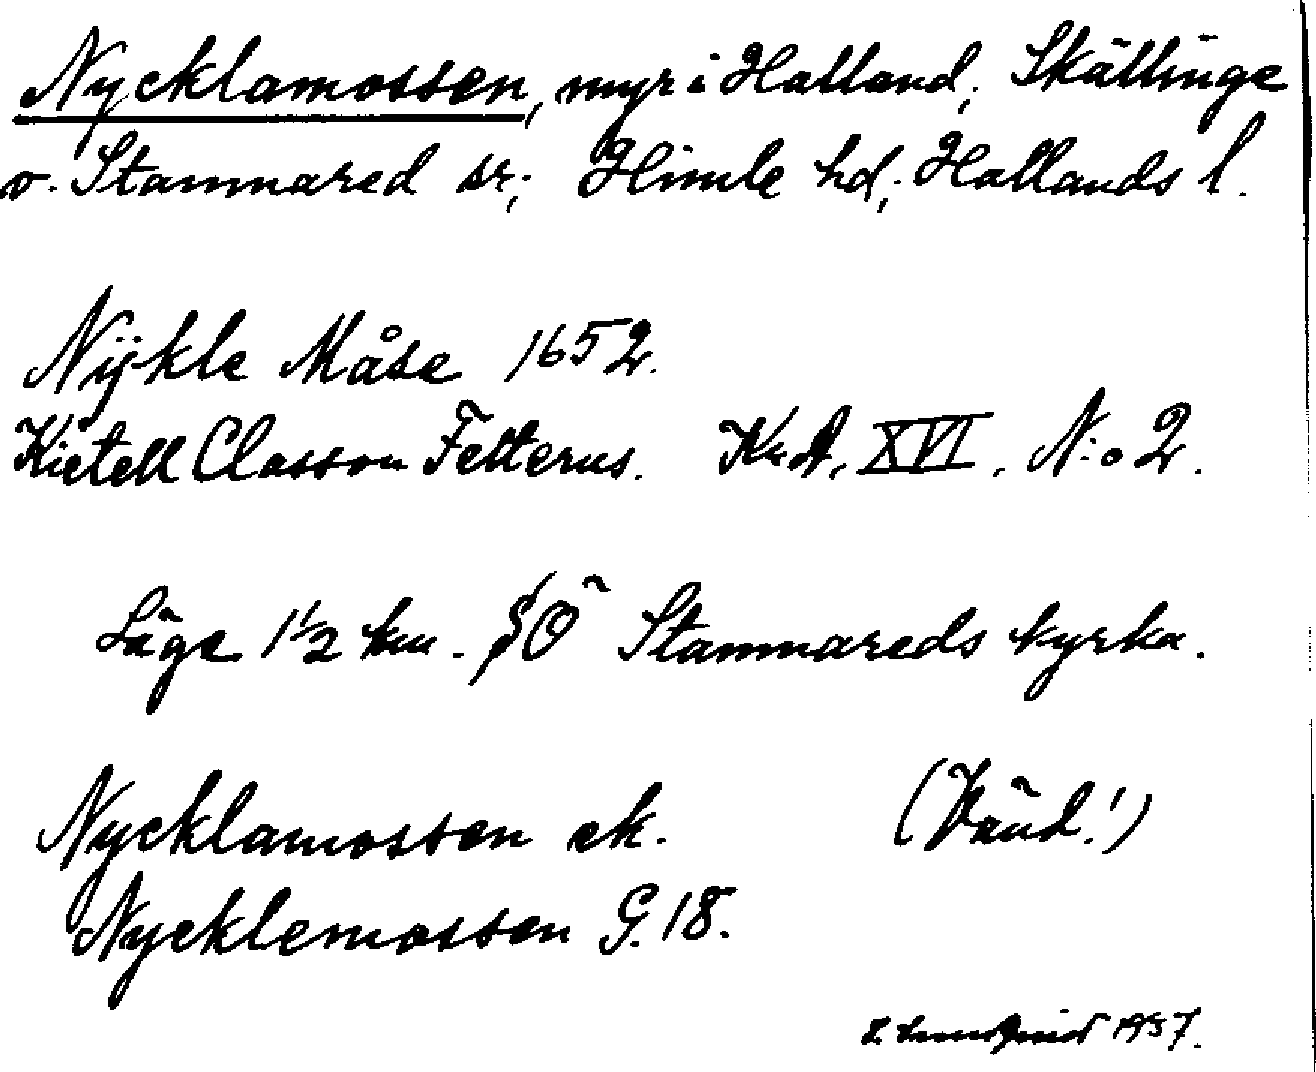 Nycklamossen, myr i Halland, Skällinge
o. Stamnared sr; Himle hd; Hallands l.
Nÿkle Måse 1652.
Kietell Classon Felterus. Kr. A. XVI. N:o 2.
Läge 1½ km. SÖ Stamnareds kyrka.
Nycklamossen ek. (Vänd!)
Nycklemossen G. 18.
1957.